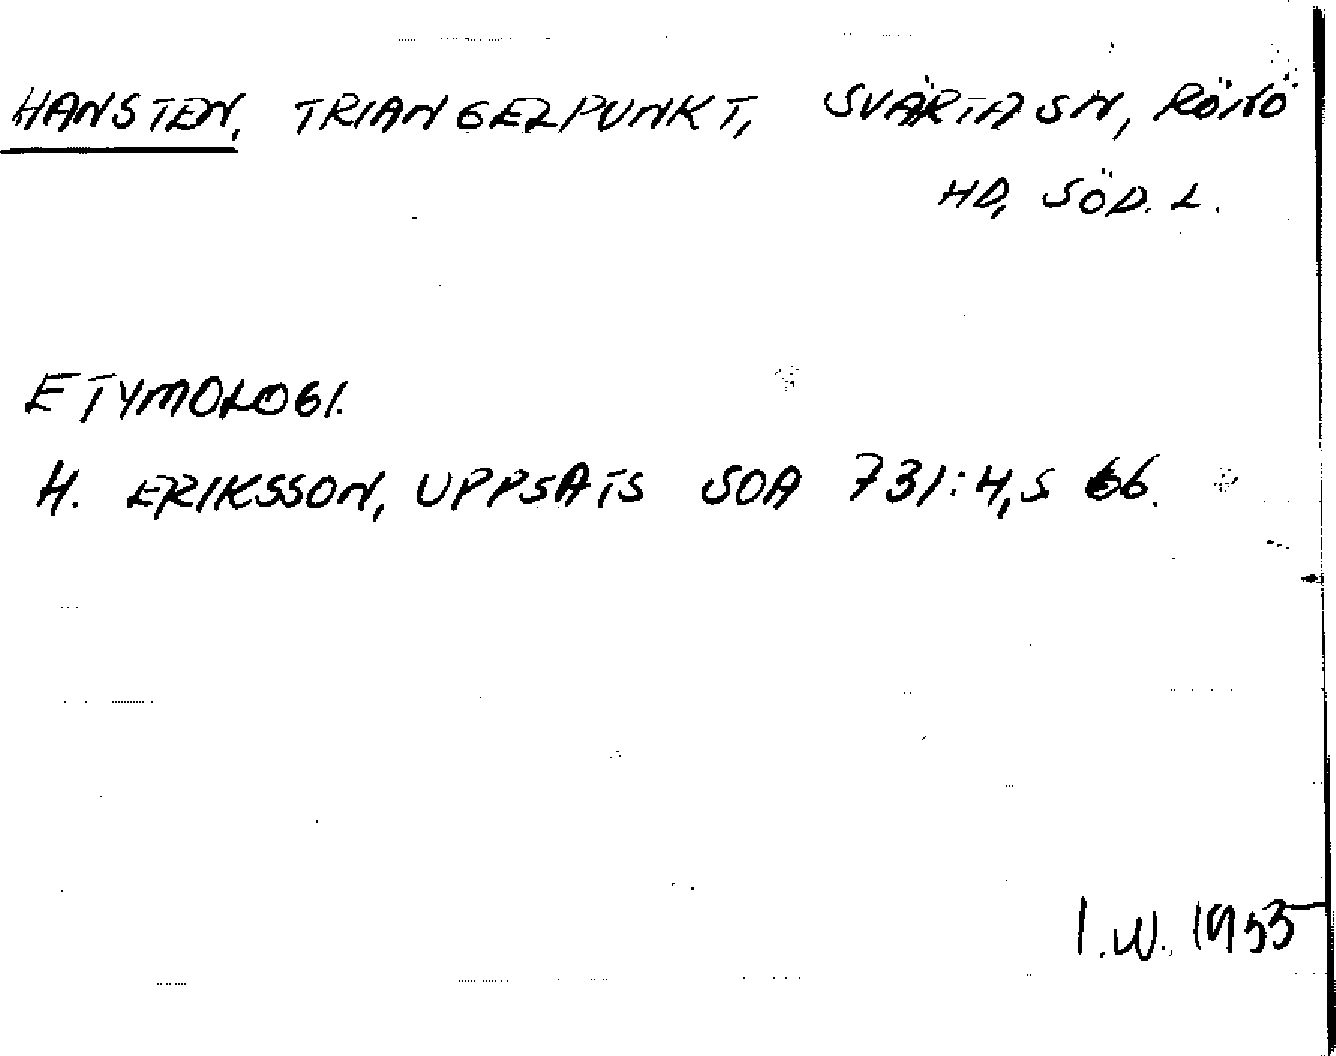 HANSTEN, TRIANGELPUNKT, SVÄRTA SN, RÖNÖ
HD, SÖD. L.
ETYMOLOGI.
H. ERIKSSON, UPPSATS SOA 731:4, S 66.
I.W. 1955